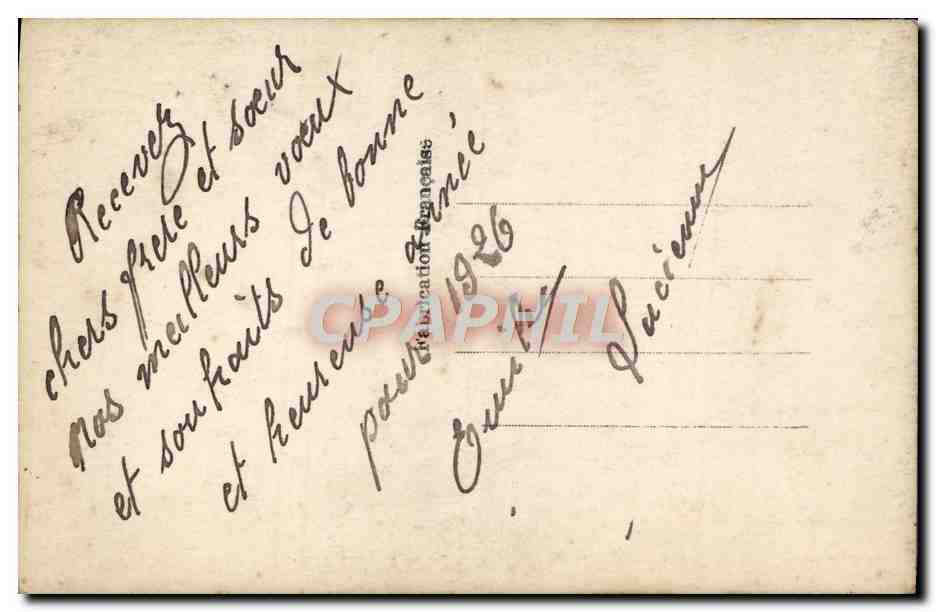 Recevez
chers frere et sœur
nos meilleurs vœux
et souhaits de bonne
et heureuse année
pour 1926
Lucienne
Fabrication Française
CPAPHIL